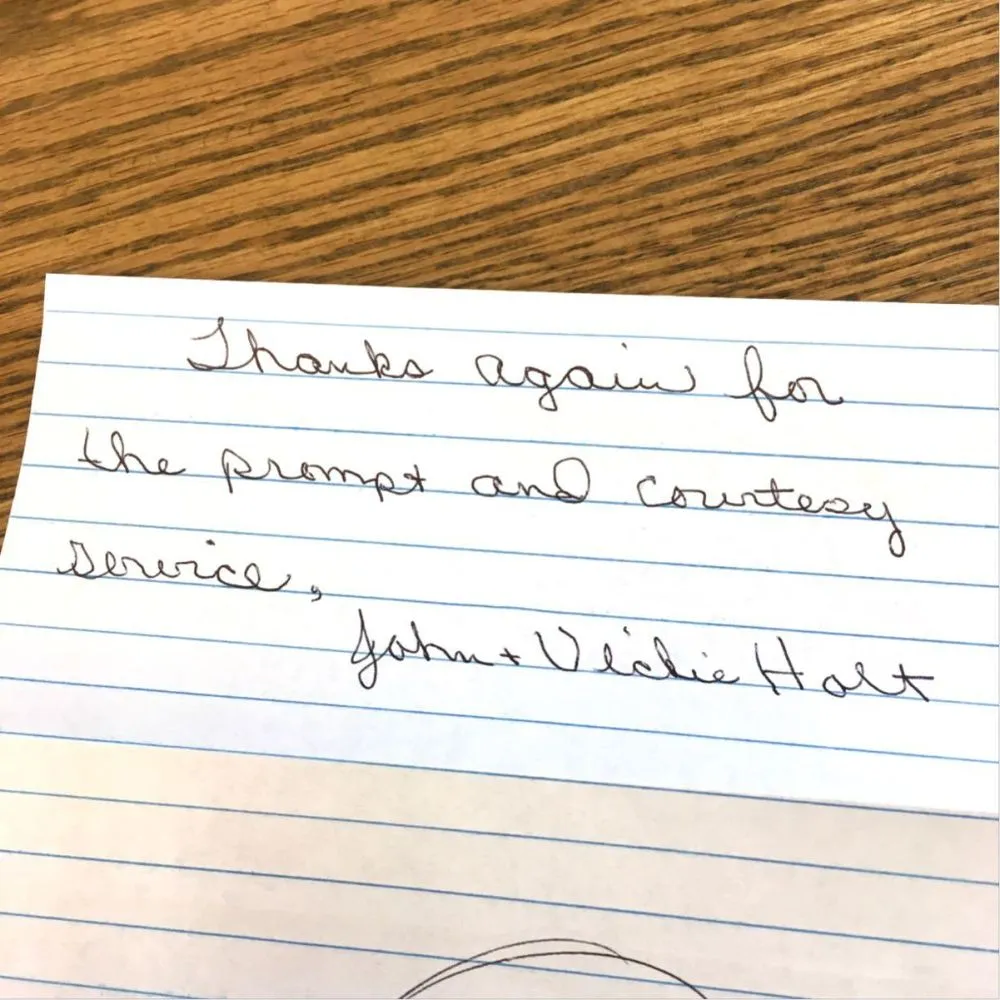 Thanks again for
the prompt and courtesy
service,
John + Vickie Holt